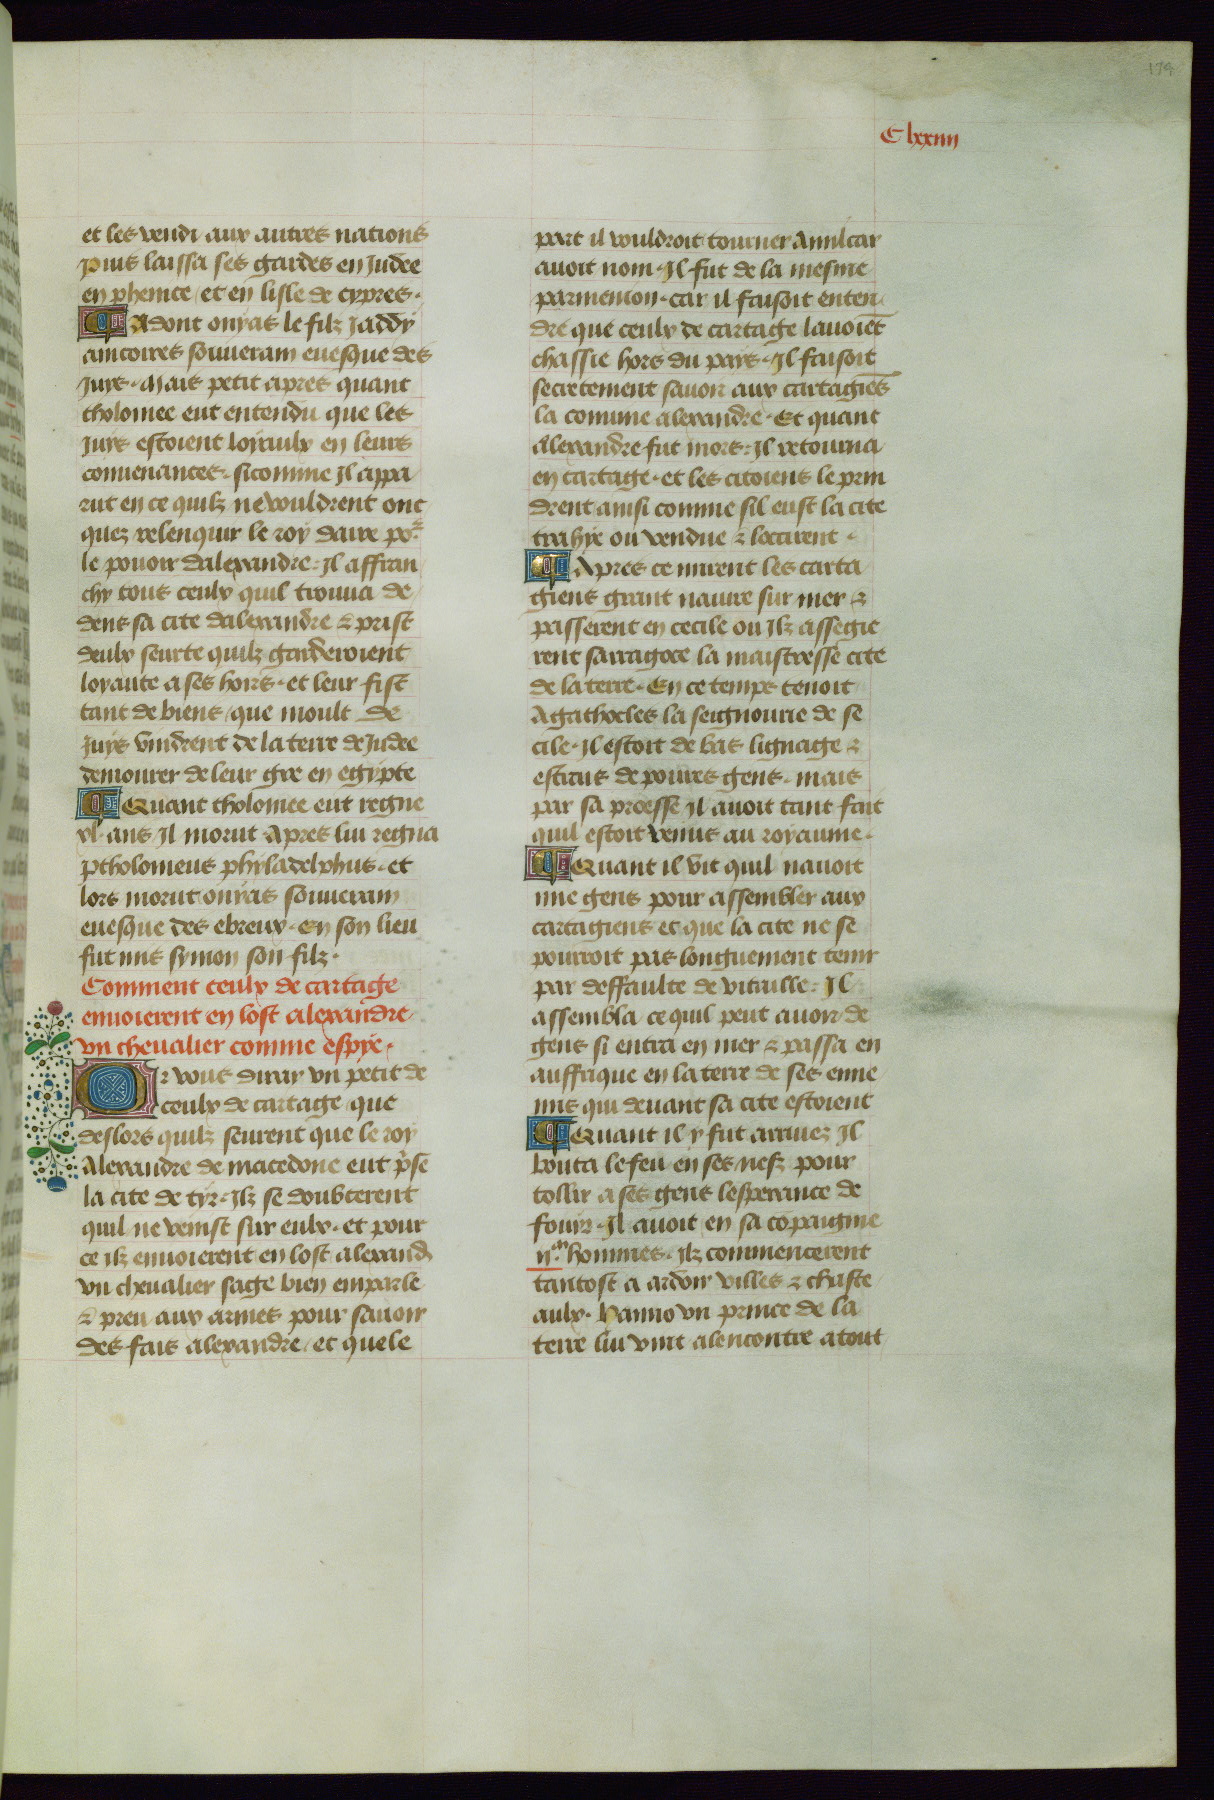 174
C lxxiiii
et les vendi aux autres nations
puis laissa ses gardes en judee
en phenice / et en lisle de cypres ·
Adont onyas le filz jaddy
ancoires souuerain euesque des
juys · Mais petit apres quant
tholomee eut entendu que les
juys estoient loyaulx en leurs
conuenances · sicomme il appa
rut en ce quilz ne vouldrent onc
ques relenquir le roy daire pour
le pouoir dalexandre · il affran
chy tous ceulx quil trouua de
dens sa cite dalexandre & prist
deulx seurte quilz garderoient
loyaute a ses hoirs · et leur fist
tant de biens / que moult de
juys vindrent de la terre de judee
demourer de leur gre en egypte
Quant tholomee eut regne
xl · ans il morut Apres lui regna
ptholomeus phyladelphus · et
lors morut onyas souuerain
euesque des ebreux · en son lieu
fut mis symon son filz ·
Comment ceulx de cartage
enuoierent en lost alexandre
vn cheualier comme espye ·
Or vous diray vn petit de
ceulx de cartage que
deslors quilz seurent que le roy
Alexandre de macedone eut p̃se
la cite de tyr · ilz se doubterent
quil ne venist sur eulx · et pour
ce ilz enuoierent en lost alexand̃
vn cheualier sage bien emparle
& preu aux armes pour sauoir
des fais alexandre / et quele
part il vouldroit tourner Amilcar
auoit nom · Il fut de la mesme
parmenion · car il faisoit enten
dre que ceulx de cartage lauoiẽt
chassie hors du pays · Il faisoit
secretement sauoir aux cartagiẽs
la comune alexandre · Et quant
Alexandre fut mors · il retourna
en cartage · et les citoiens le prin
drent ainsi comme sil eust la cite
trahye ou vendue & locirent ·
Apres ce mirent les carta
giens grant nauire sur mer &
passerent en cecile ou ilz assegie
rent sarragoce la maistresse cite
de la terre · En ce temps tenoit
Agathocles la seignourie de se
cile · il estoit de bas lignage &
estraus de poures gens · mais
par sa proesse il auoit tant fait
quil estoit venus au royaume ·
Quant il vit quil nauoit
mie gens pour assembler aux
cartagiens et que la cite ne se
pourroit pas longuement tenir
par deffaulte de vitaille · Il
assembla ce quil peut auoir de
gens si entra en mer & passa en
auffrique en la terre de ses enne
mis qui deuant sa cite estoient
Quant il y fut arriuez Il
bouta le feu en ses nefz pour
tollir a ses gens lesperance de
fouir · il auoit en sa cõpaignie
ij.m hommes · ilz commencerent
tantost a ardoir villes & chaste
aulx · hanno vn prince de la
terre lui vint alencontre atout